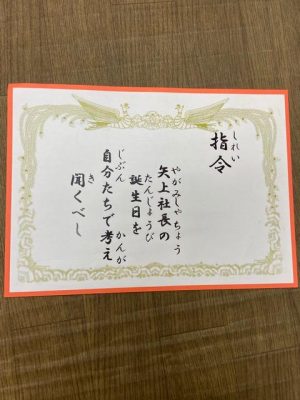 しれい
指令
やがみしゃちょう
矢上社長の
たんじょうび
誕生日を
じぶん かんが
自分たちで考え
き
聞くべし